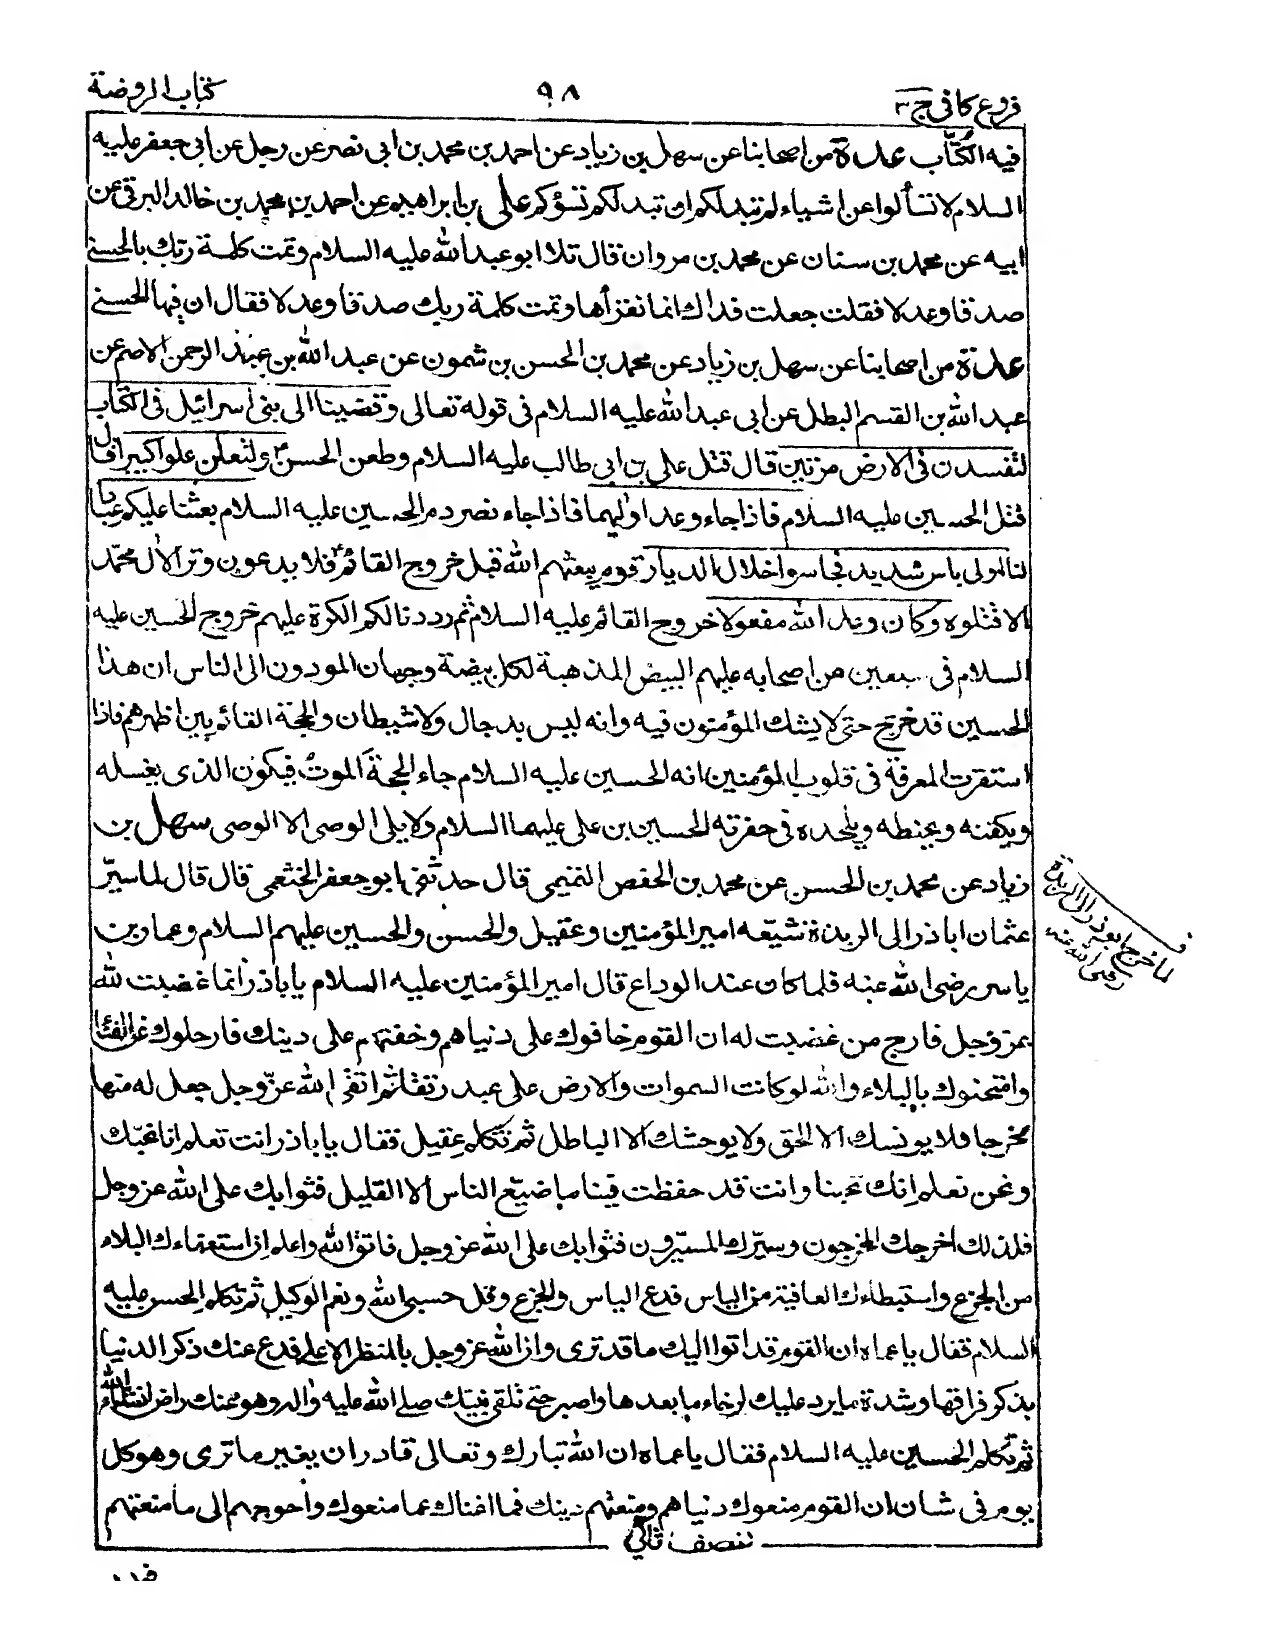 فروع كافي ج ٣
٩٨
كتاب الروضة
فيه الكُتّاب عدة من اصحابنا عن سهل بن زياد عن احمد بن محمد بن ابى نصر عن رجل عن ابى جعفر عليه
السلام لا تسألوا عن اشياء لم تبد لكم ان تبد لكم تسؤكم على بن ابراهيم عن احمد بن محمد بن خالد البرقى عن
ابيه عن محمد بن سنان عن محمد بن مروان قال تلا ابو عبد الله عليه السلام وتمت كلمة ربك بالحسنى
صدقا وعدلا فقلت جعلت فداك انما نقرأها وتمت كلمة ربك صدقا وعدلا فقال ان فيها الحسنى
عدة من اصحابنا عن سهل بن زياد عن محمد بن الحسن بن شمون عن عبد الله بن عبد الرحمن الاصم عن
عبد الله بن القسم البطل عن ابى عبد الله عليه السلام فى قوله تعالى وقضينا الى بنى اسرائيل فى الكتاب
لتفسدن فى الارض مرتين قال قتل على بن ابى طالب عليه السلام وطعن الحسن ع ولتعلن علوا كبيرا قال
قتل الحسين عليه السلام فاذا جاء وعد اوليهما فاذا جاء نصر دم الحسين عليه السلام بعثنا عليكم عبادا
لنا اولى باس شديد فجاسوا خلال الديار قوم يبعثهم الله قبل خروج القائم ع فلا يدعون وترا لال محمد
الا قتلوه وكان وعد الله مفعولا خروج القائم عليه السلام ثم رددنا لكم الكرة عليهم خروج الحسين عليه
السلام فى سبعين من اصحابه عليهم البيض المذهبة لكل بيضة وجهان المودون الى الناس ان هذا
الحسين قد خرج حتى لا يشك المؤمنون فيه وانه ليس بدجال ولا شيطان والحجة القائم بين اظهرهم فاذا
استقرت المعرفة فى قلوب المؤمنين انه الحسين عليه السلام جاء الحجةَ الموتُ فيكون الذى يغسله
ويكفنه ويحنطه ويلحده فى حفرته الحسين بن على عليهما السلام ولا يلى الوصى الا الوصى سهل بن
زياد عن محمد بن الحسن عن محمد بن الحفص التميمى قال حدثنى ابو جعفر الخثعمى قال قال لما سيّر
عثمان اباذر الى الربذة شيّعه امير المؤمنين وعقيل والحسن والحسين عليهم السلام وعمار بن
ياسر رضى الله عنه فلما كان عند الوداع قال امير المؤمنين عليه السلام يا باذر انما غضبت لله
عز وجل فارج من غضبت له ان القوم خافوك على دنياهم وخفتهم على دينك فارحلوك عن الفناء
وامتحنوك بالبلاء والله لو كانت السموات والارض على عبد رتقا ثم اتقى الله عزّ وجل جعل له منها
مخرجا فلا يونسك الا الحق ولا يوحشك الا الباطل ثم تكلم عقيل فقال يا باذر انت تعلم انا نحبّك
ونحن نعلم انك تحبنا وانت قد حفظت فينا ما ضيّع الناس الا القليل فثوابك على الله عز وجل
فلذلك اخرجك المخرجون وسيّرك المسيّرون فثوابك على الله عز وجل فاتق الله واعلم ان استعفاءك البلاء
من الجزع واستبطاءك العافية من الياس فدع الياس والجزع وقل حسبى الله ونعم الوكيل ثم تكلم الحسن عليه
السلام فقال يا عماه ان القوم قد اتوا اليك ما قد ترى وان الله عز وجل بالمنظر الاعلى فدع عنك ذكر الدنيا
بذكر فراقها وشدة ما يرد عليك لرخاء ما بعدها واصبر حتى تلقى نبيّك صلى الله عليه واله وهو عنك راض انشاء الله
ثم تكلم الحسين عليه السلام فقال يا عماه ان الله تبارك وتعالى قادر ان يغير ما ترى وهو كل
يوم فى شان ان القوم منعوك دنياهم ومنعتهم دينك فما اغناك عما منعوك واحوجهم الى ما منعتهم
نصف ثانى
لما خرج ابو ذر الى الربذة
رضى الله عنه